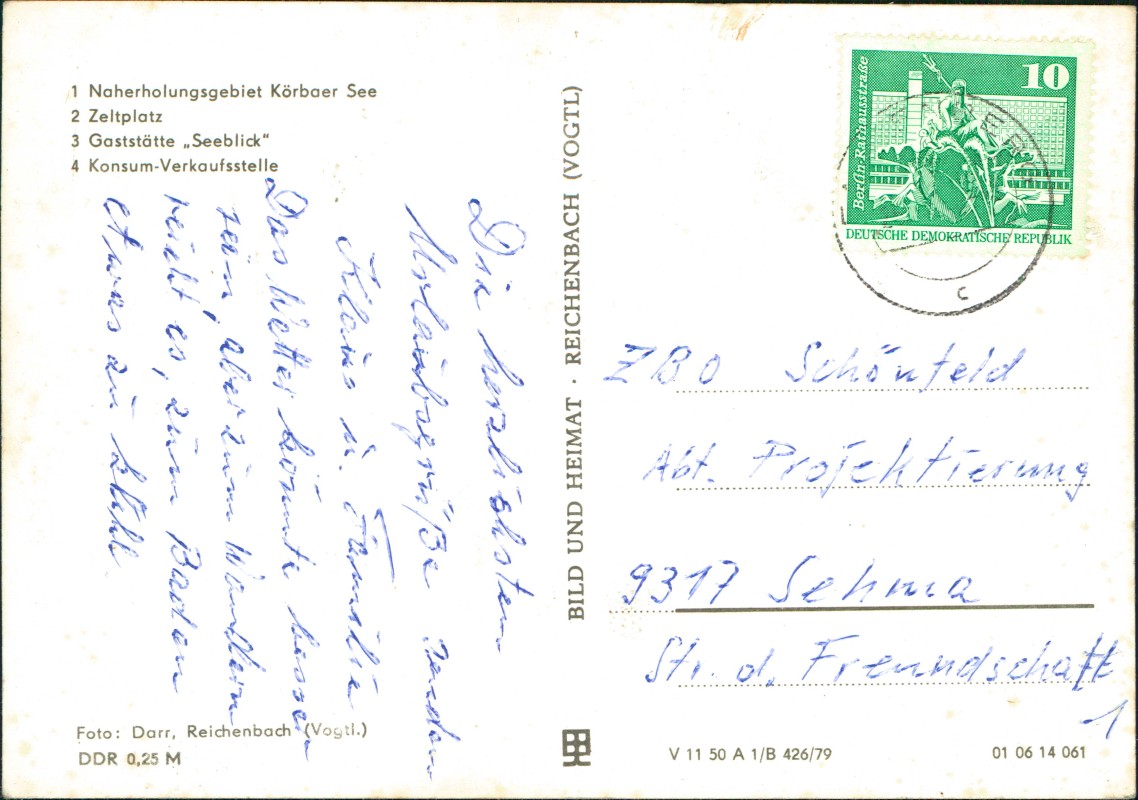 1 Naherholungsgebiet Körbaer See
2 Zeltplatz
3 Gaststätte „Seeblick“
4 Konsum-Verkaufsstelle
Die herzlichsten
Urlaubsgrüße senden
Klaus u. Familie
Das Wetter könnte besser
sein, aber zum Wandern
reicht es, zum Baden
etwas zu kühl.
Foto: Darr, Reichenbach (Vogtl.)
DDR 0,25 M
BILD UND HEIMAT · REICHENBACH (VOGTL)
10
Berlin-Rathausstraße
DEUTSCHE DEMOKRATISCHE REPUBLIK
c
ZBO Schönfeld
Abt. Projektierung
9317 Sehma
Str. d. Freundschaft
1
V 11 50 A 1/B 426/79
01 06 14 061